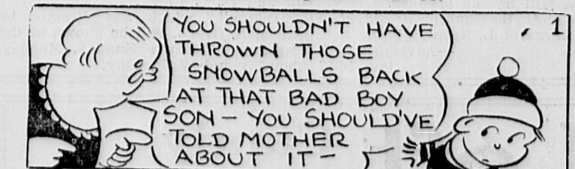 YOU SHOULDN'T HAVE
THROWN THOSE
SNOWBALLS BACK
AT THAT BAD BOY
SON - YOU SHOULD'VE
TOLD MOTHER
ABOUT IT -
1